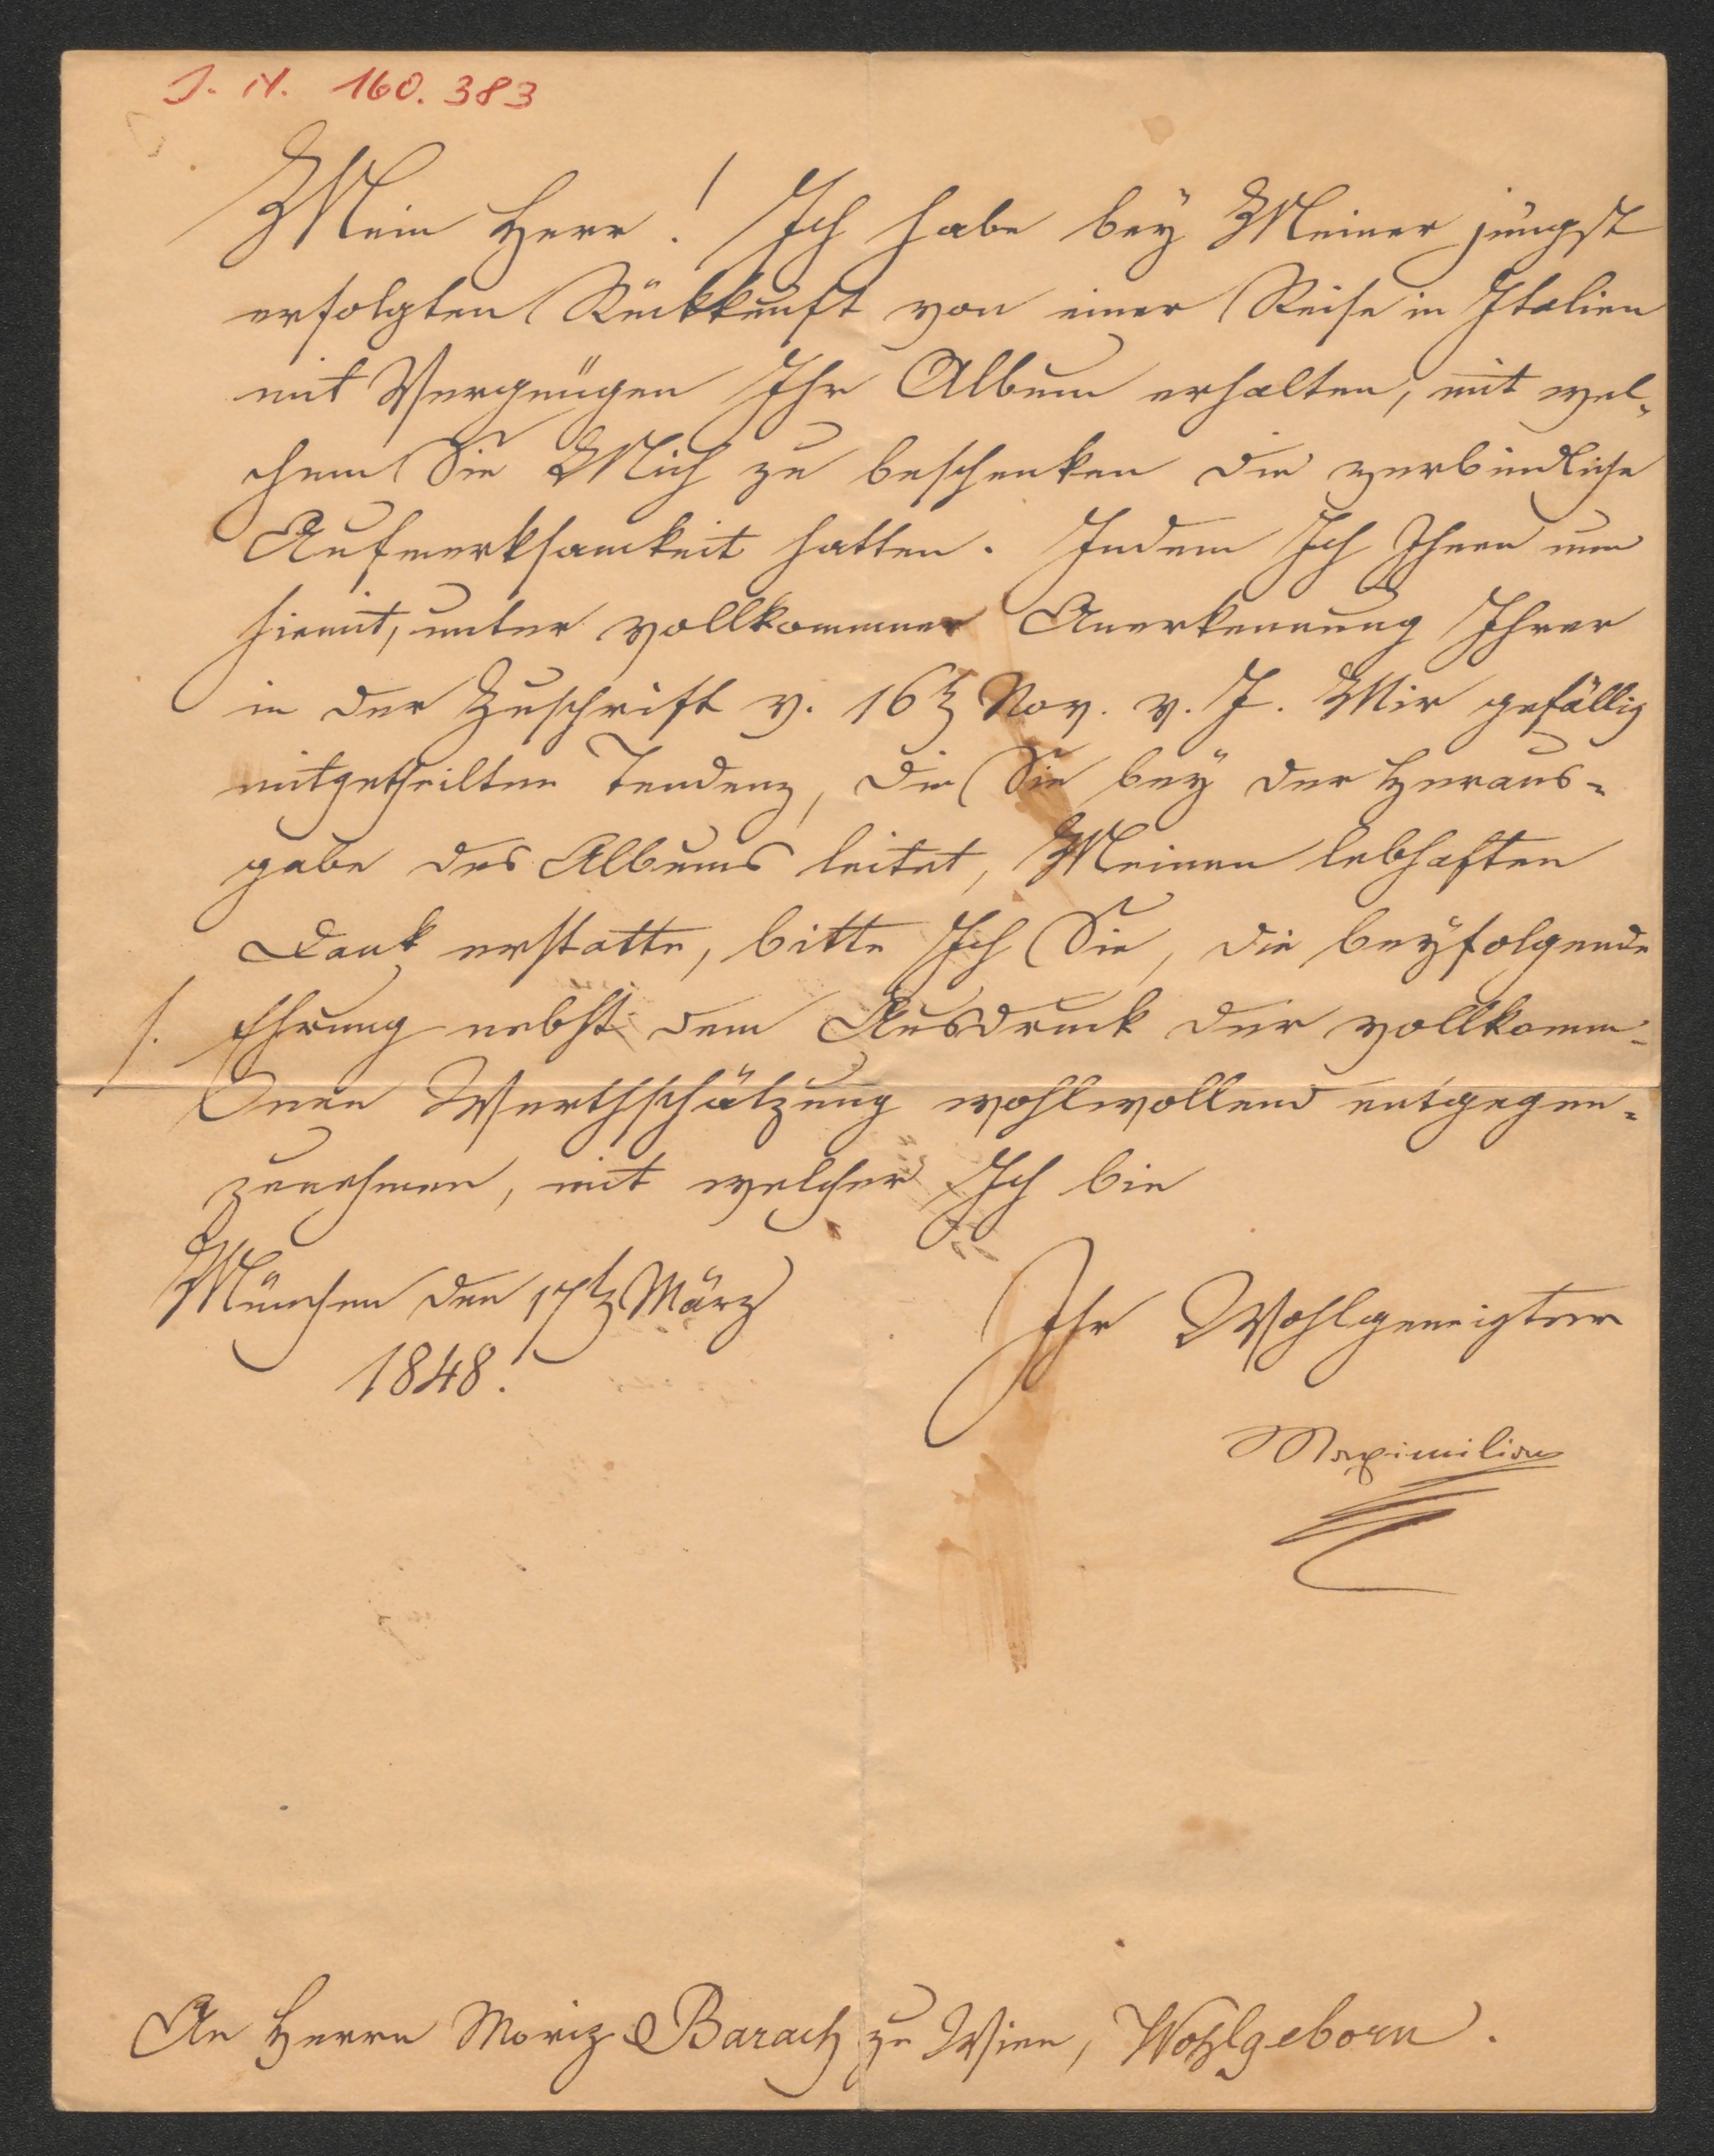 J. N. 160.383
Mein Herr! Ich habe bey Meiner jüngst
erfolgten Rückkunft von einer Reise in Italien
mit Vergnügen Ihr Album erhalten, mit wel-
chem Sie Mich zu beschenken die verbindliche
Aufmerksamkeit hatten. Indem Ich Ihnen nun
hiemit, unter vollkommner Anerkennung Ihrer
in der Zuschrift v. 16ten Nov. v. J. Mir gefällig
mitgetheilten Tendenz, die Sie bey der Heraus-
gabe des Albums leitet, Meinen lebhaften
Dank erstatte, bitte Ich Sie, die beyfolgende
/. Ehrung nebst dem Ausdruck der vollkomm-
nen Werthschätzung wohlwollend entgegen-
zunehmen, mit welcher Ich bin
München den 17ten März
1848.
Ihr Wohlgeneigter
Maximilian
An Herrn Moriz Barach zu Wien, Wohlgeborn.